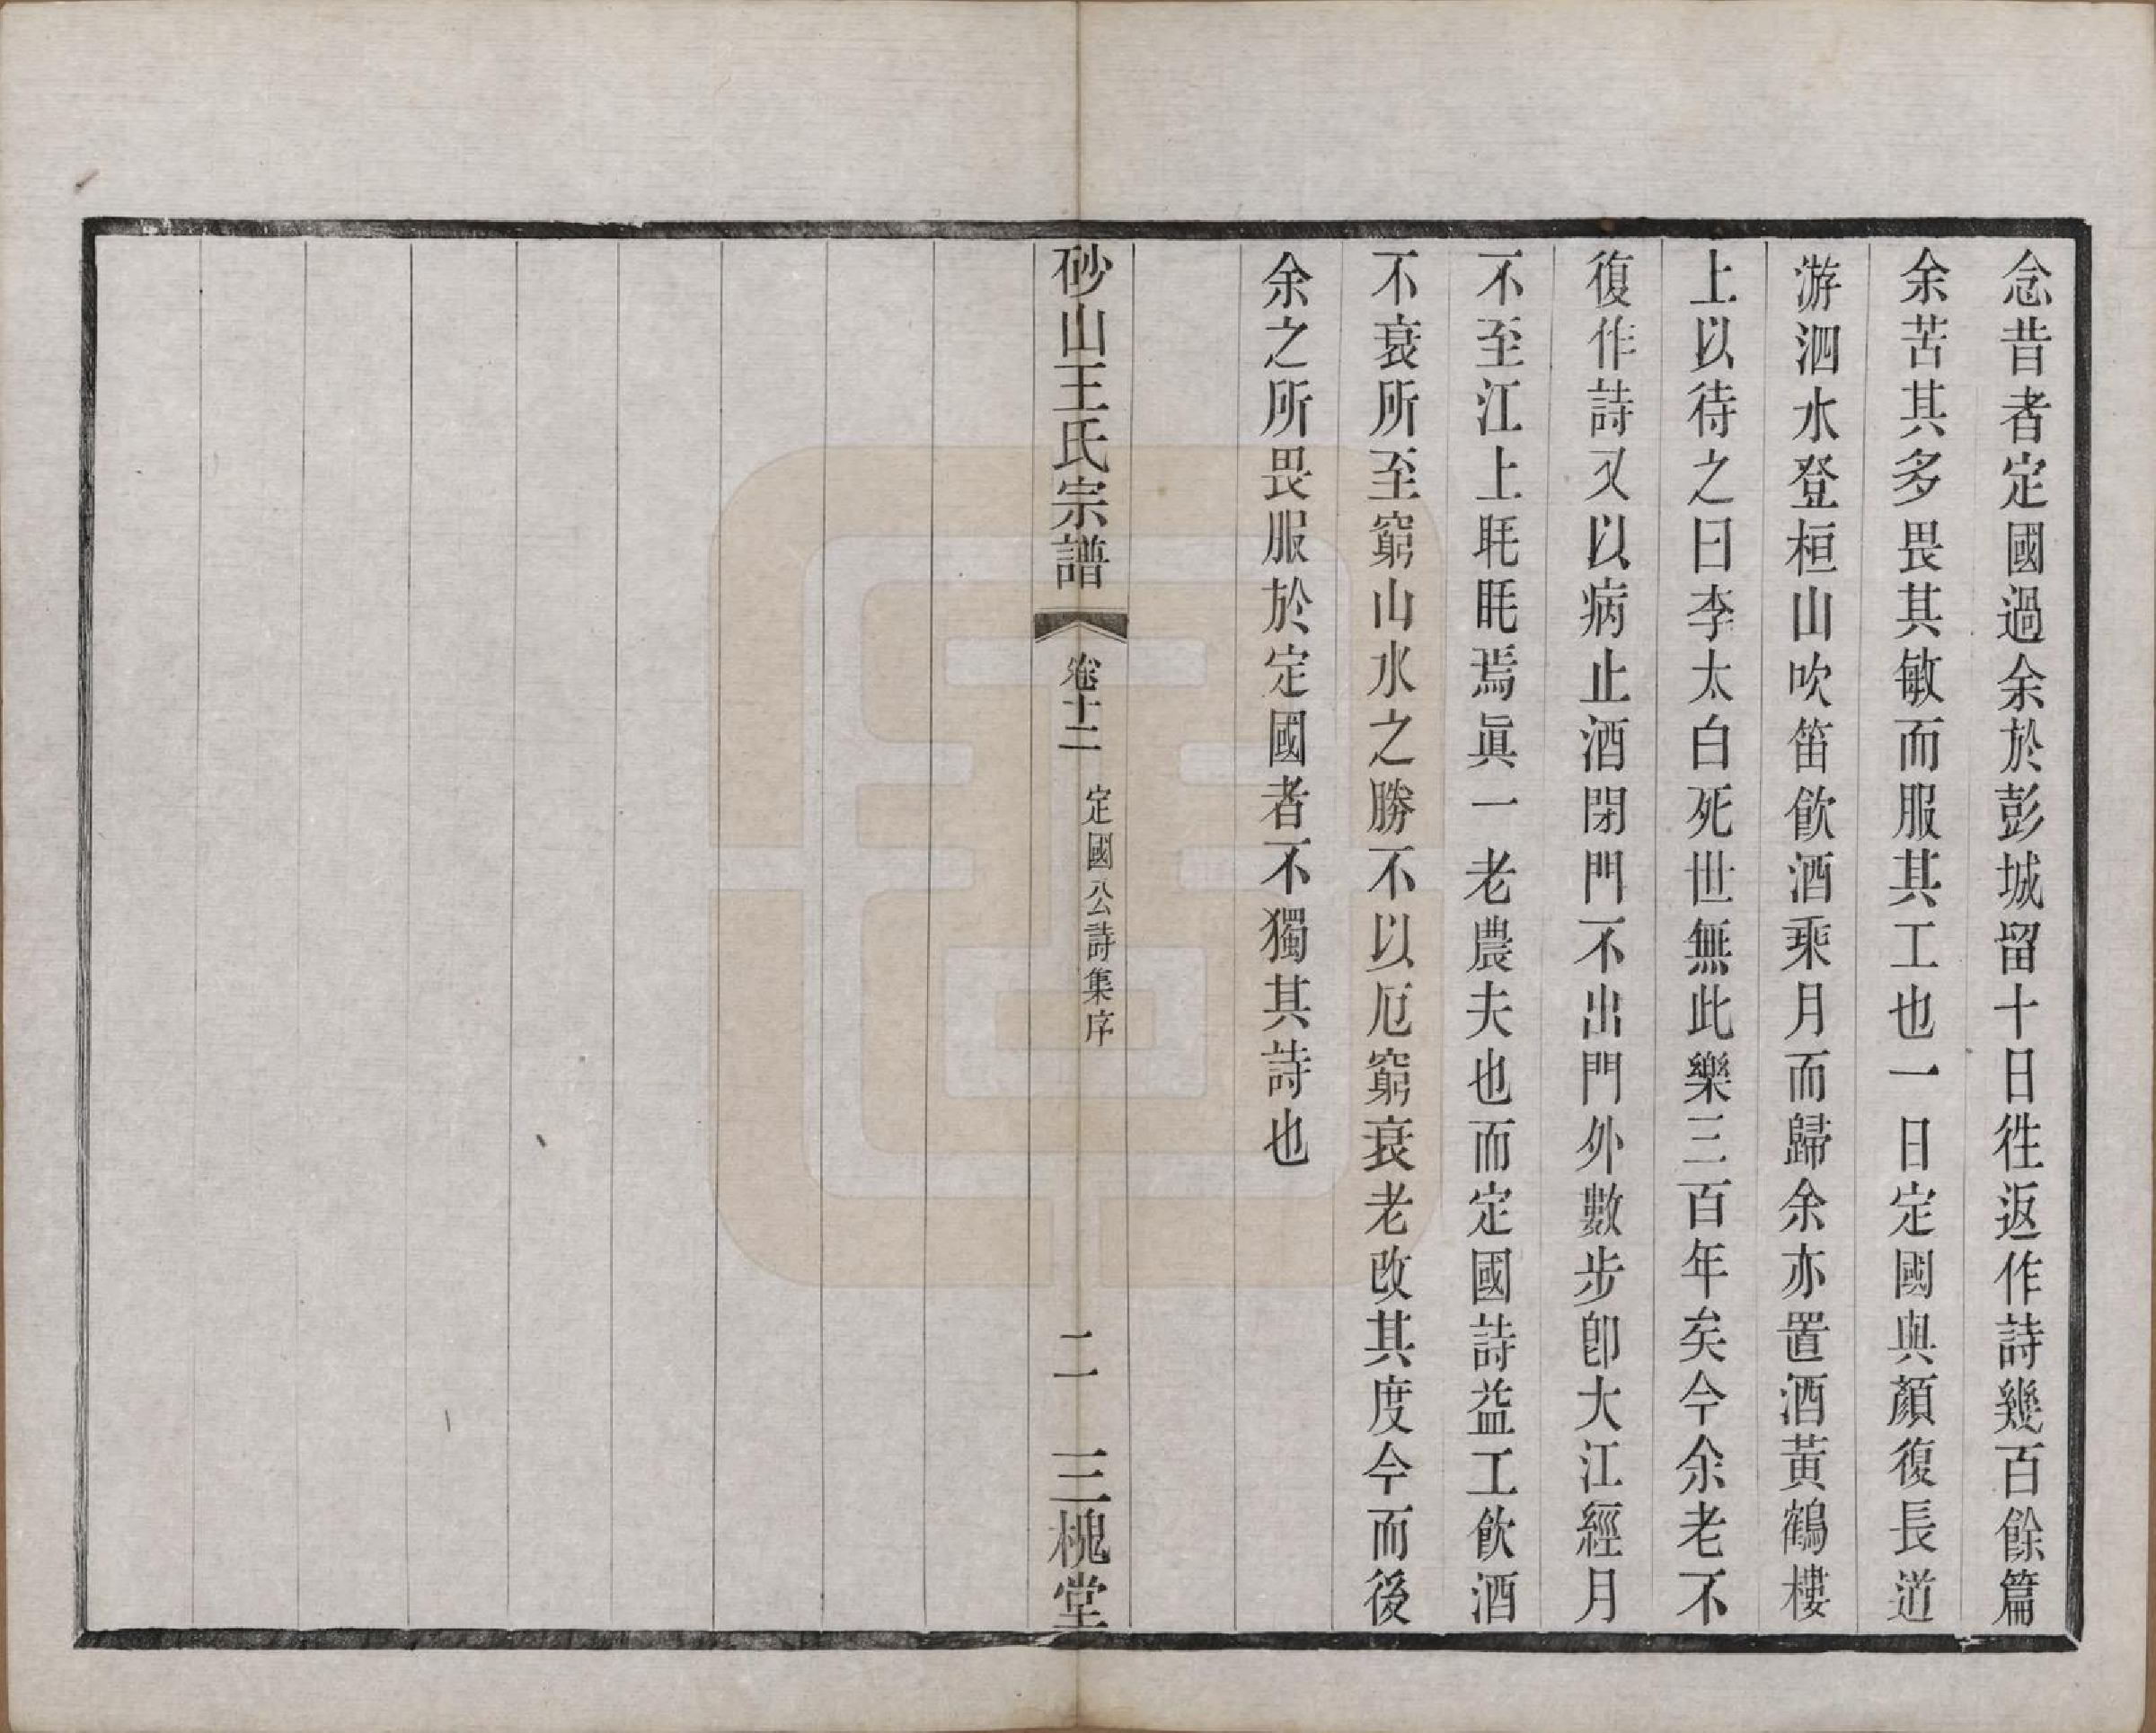 念昔者定國過余於彭城留十日徃返作詩幾百餘篇
余苦其多畏其敏而服其工也一日定國與顏復長道
游泗水登桓山吹笛飮酒乘月而歸余亦置酒黃鶴樓
上以待之曰李太白死世無此樂三百年矣今余老不
復作詩又以病止酒閉門不出門外數步卽大江經月
不至江上眊眊焉眞一老農夫也而定國詩益工飮酒
不衰所至窮山水之勝不以厄窮衰老改其度今而後
余之所畏服於定國者不獨其詩也
砂山王氏宗譜
卷十二
定國公詩集序
二
三槐堂